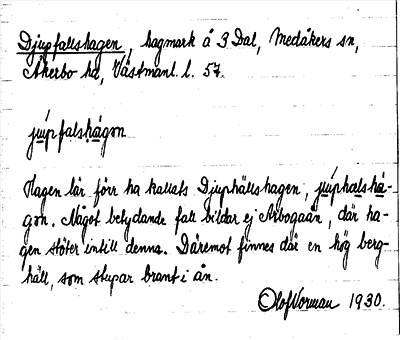 Djupfallshagen, hagmark å 3 Dal, Medåkers sn,
Åkerbo hd, Västmanl. l. 57.
júpfalshågon
Hagen lär förr ha kallats Djuphällshagen, júphalshå-
gon. Något betydande fall bildar ej Arbogaån, där ha-
gen stöter intill denna. Däremot finnes där en hög berg-
häll, som stupar brant i ån.
Olof Norman 1930.